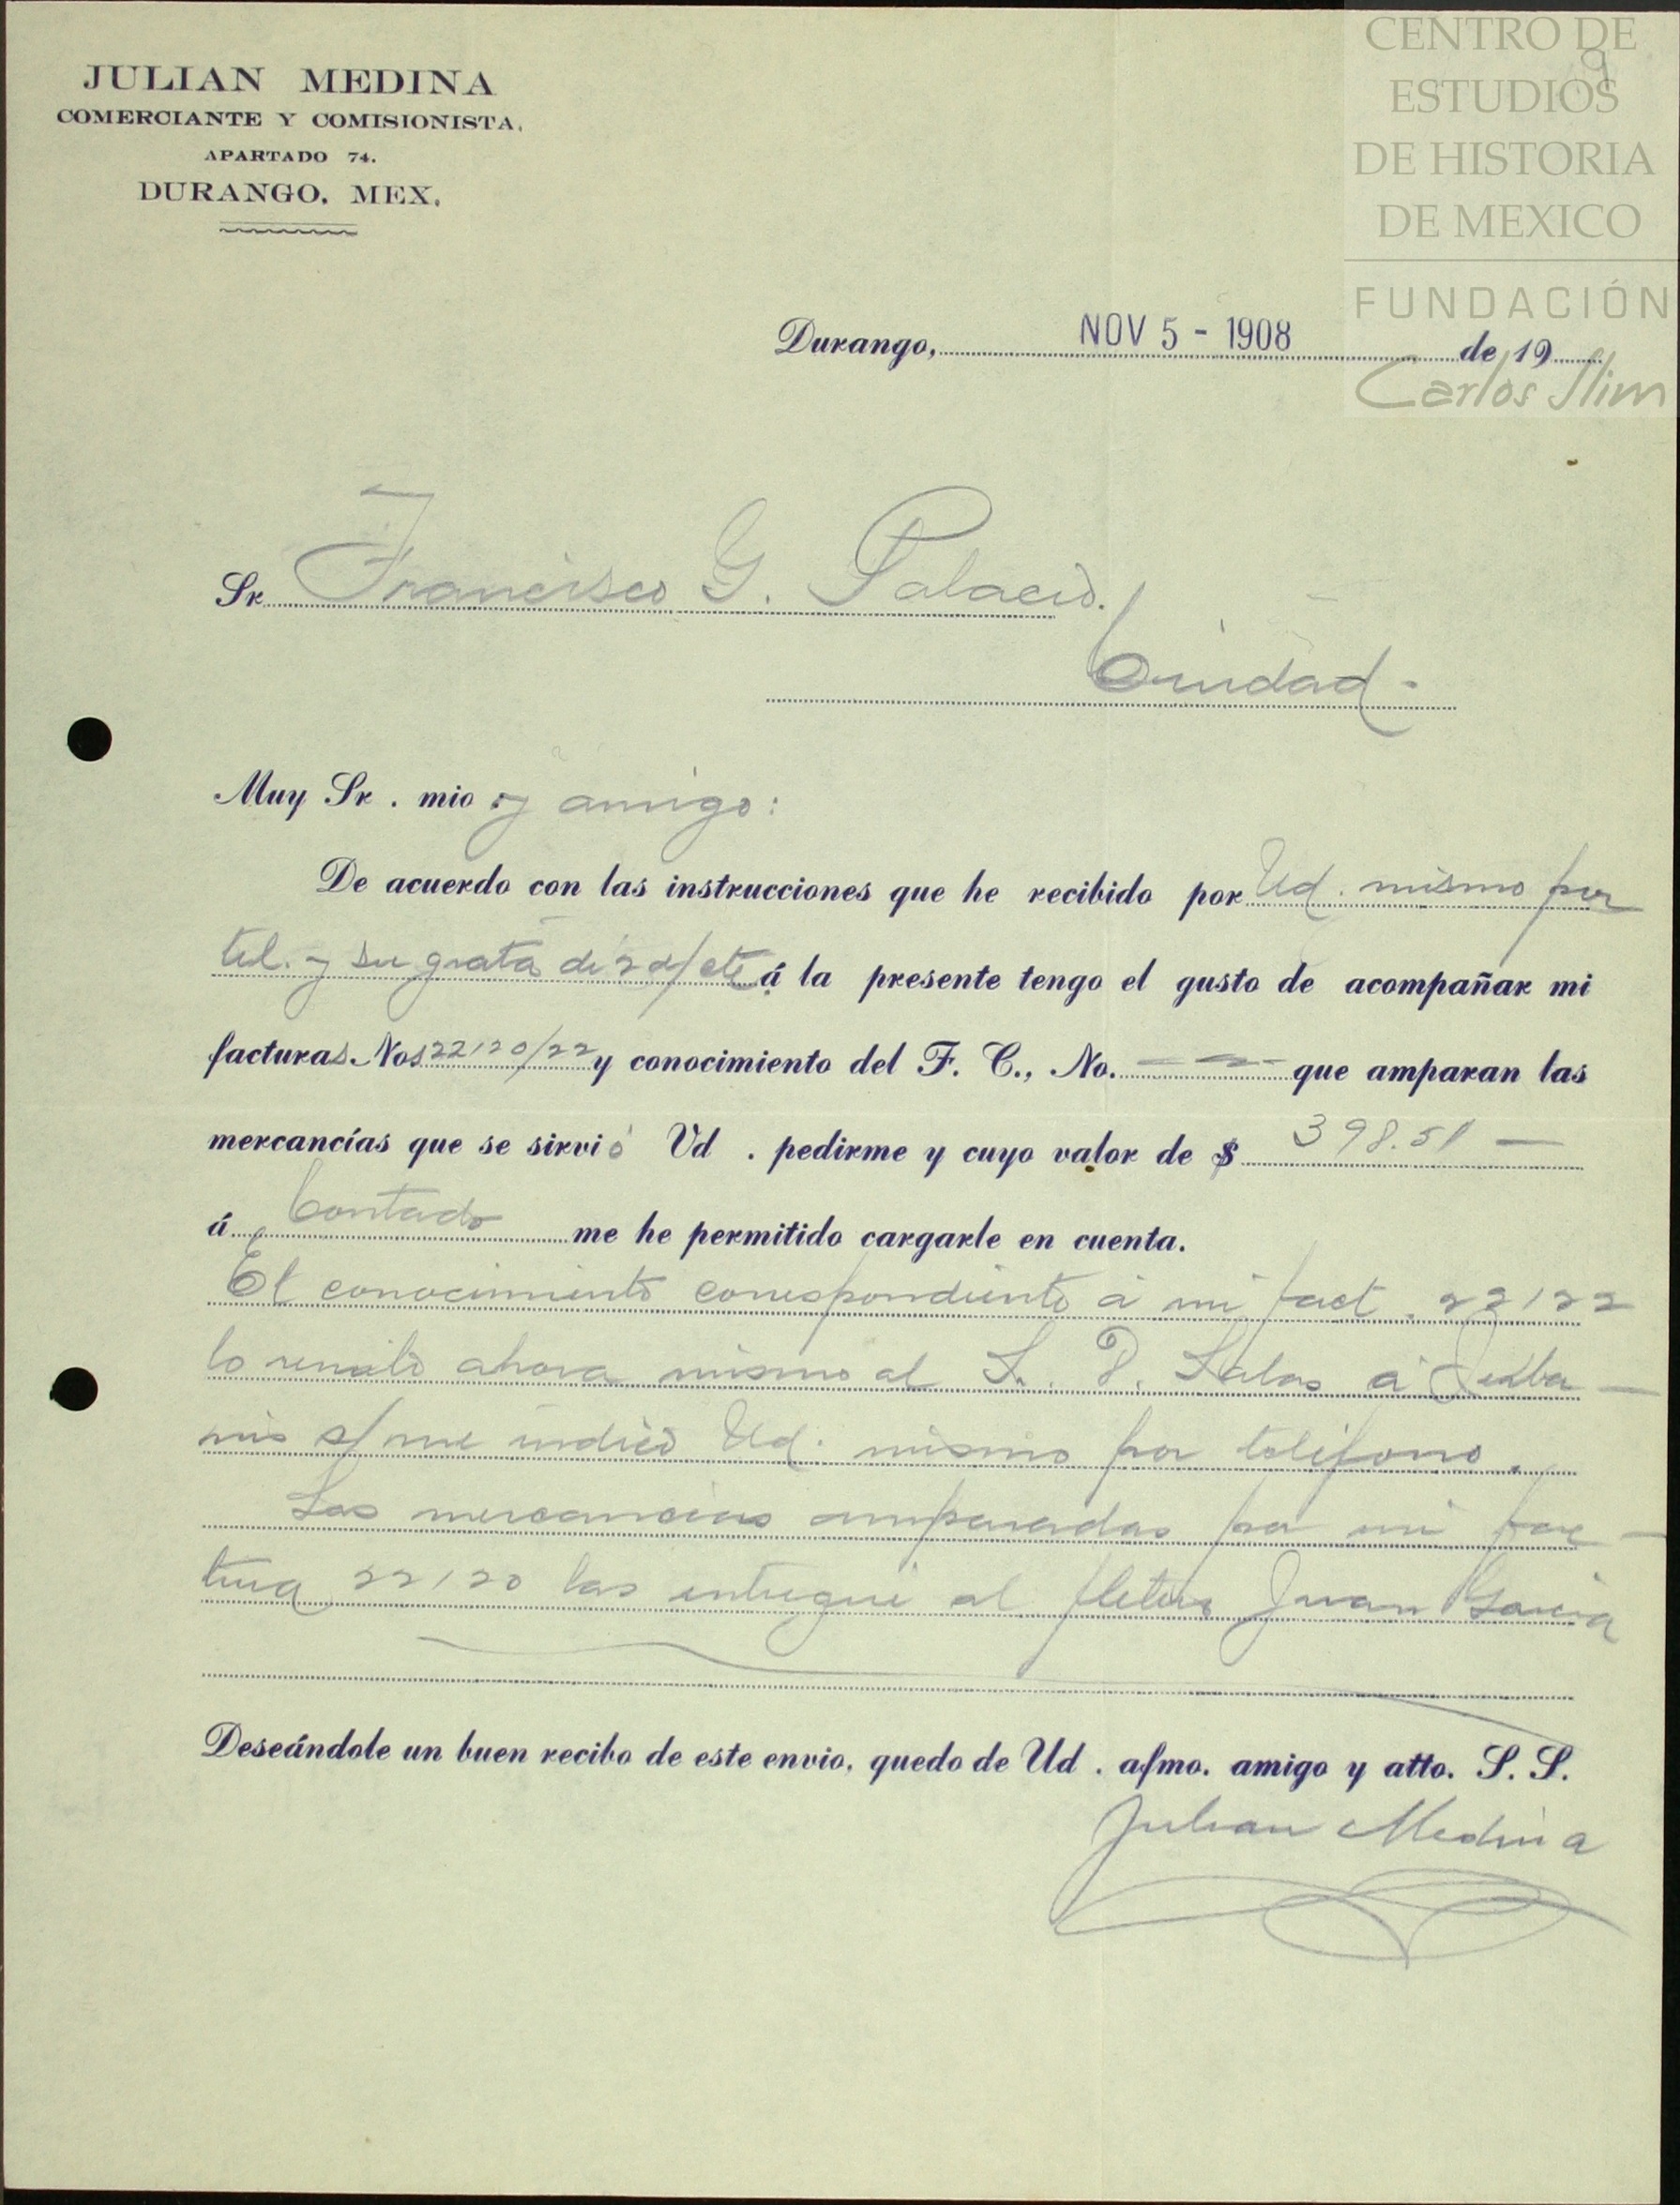 CENTRO DE
ESTUDIOS
DE HISTORIA
DE MEXICO
FUNDACIÓN
Carlos Slim
9
JULIAN MEDINA
COMERCIANTE Y COMISIONISTA.
APARTADO 74.
DURANGO, MEX.
Durango, NOV 5 - 1908 de 19
Sr Francisco G. Palacio.
Ciudad.
Muy Sr. mio y amigo:
De acuerdo con las instrucciones que he recibido por Ud. mismo por
tel. y su grata de á la presente tengo el gusto de acompañar mi
facturas Nos 22120/22 y conocimiento del F. C., No. — que amparan las
mercancías que se sirvió Ud. pedirme y cuyo valor de $ 398.51 —
á Contado me he permitido cargarle en cuenta.
El conocimiento correspondiente á mi fact. 22122
lo remito ahora mismo al S. P. Salas á
s/ me indicó Ud. mismo por teléfono.
Las mercancias amparadas por mi fac-
tura 22120 las entregué al fletero Juan Garcia
Deseándole un buen recibo de este envio, quedo de Ud. afmo. amigo y atto. S. S.
Julian Medina